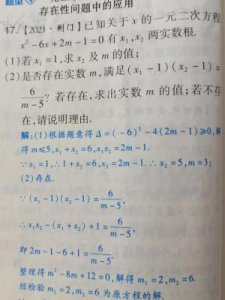 存在性问题中的应用
17.【2021·荆门】已知关于 x 的一元二次方程
x²-6x+2m-1=0 有 x₁,x₂ 两实数根.
(1)若 x₁=1,求 x₂ 及 m 的值;
(2)是否存在实数 m,满足(x₁-1)(x₂-1)=
6/(m-5)? 若存在,求出实数 m 的值;若不存
在,请说明理由.
解:(1)根据题意得 Δ=(-6)²-4(2m-1)≥0,解
得 m≤5,x₁+x₂=6,x₁x₂=2m-1.
∵x₁=1,∴1+x₂=6,x₂=2m-1.∴x₂=5,m=3;
(2)存在.
∵(x₁-1)(x₂-1)=6/(m-5),
∴x₁x₂-(x₁+x₂)+1=6/(m-5),
即 2m-1-6+1=6/(m-5),
整理得 m²-8m+12=0,解得 m₁=2,m₂=6.
经检验 m₁=2,m₂=6 为原方程的解.